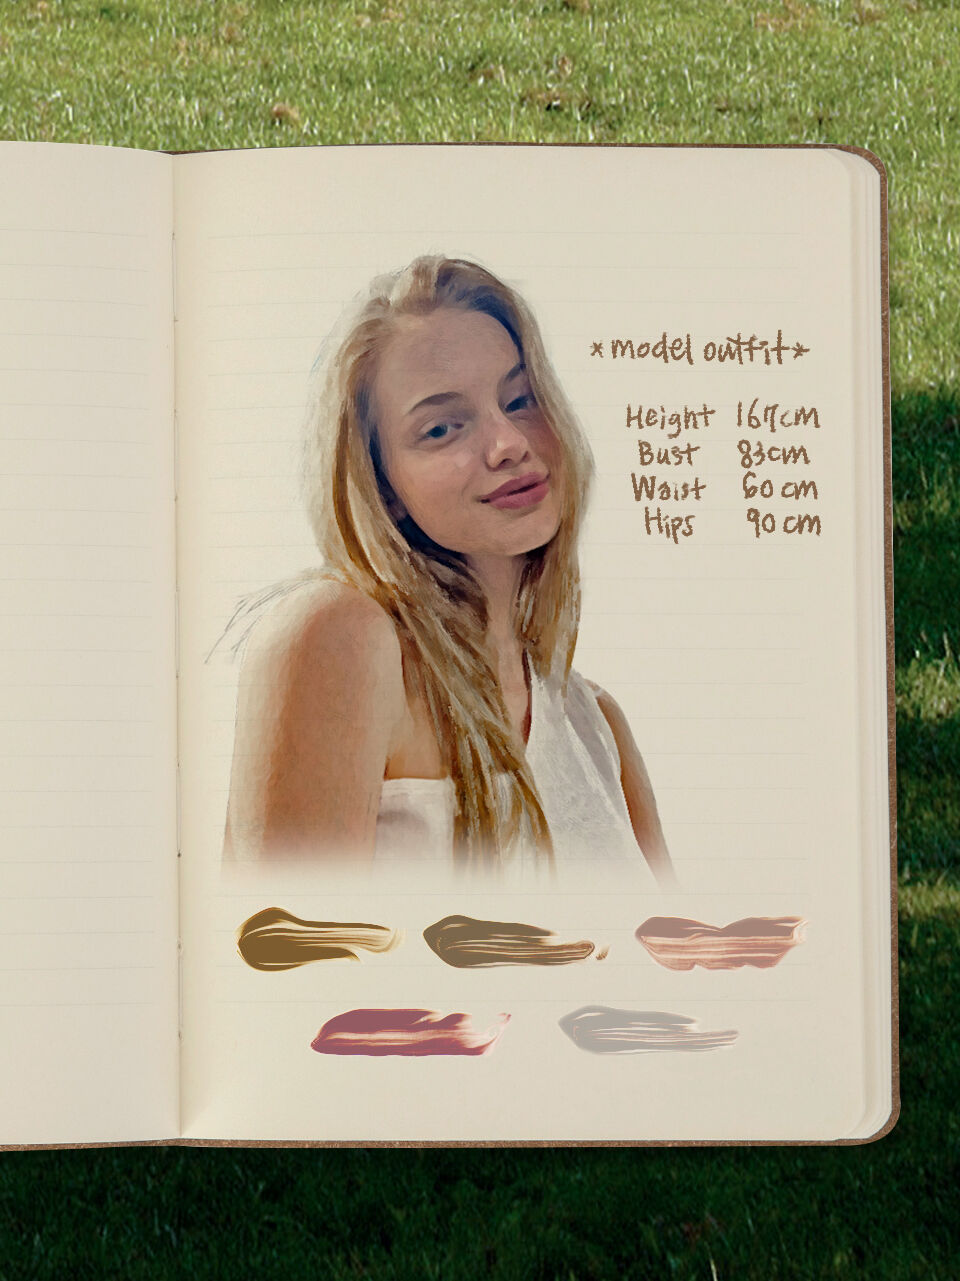 *model outfit*
Height 167cm
Bust 83cm
Waist 60 cm
Hips 90 cm